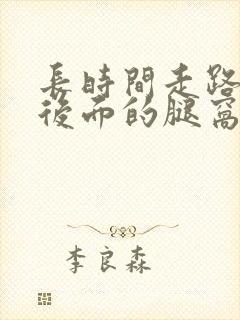 長時間走路
後面的腿窩
李良森